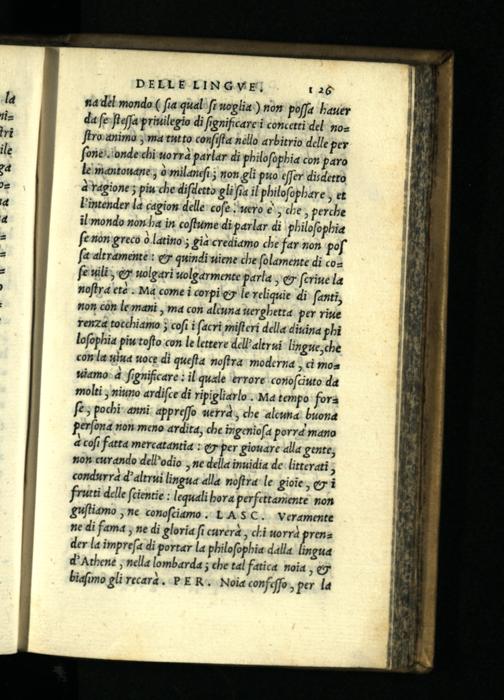 DELLE LINGVE. 126
na del mondo (sia qual si voglia) non possa haver
da se stessa privilegio di significare i concetti del no-
stro animo, ma tutto consista nello arbitrio delle per
sone. onde chi vorrà parlar di philosophia con paro
le mantouane, ò milanesi; non gli puo esser disdetto
à ragione; piu che disdetto gli sia il philosophare, et
l'intender la cagion delle cose. vero è, che, perche
il mondo non ha in costume di parlar di philosophia
se non greco ò latino; già crediamo che far non pos
sa altramente: & quindi viene che solamente di co-
se vili, & volgari volgarmente parla, & scriue la
nostra età. Ma come i corpi & le reliquie di santi,
non con le mani, ma con alcuna verghetta per riue
renza tocchiamo; cosi i sacri misteri della diuina phi
losophia piu tosto con le lettere dell'altrui lingue, che
con la viua voce di questa nostra moderna, ci mo-
uiamo à significare: il quale errore conosciuto da
molti, niuno ardisce di ripigliarlo. Ma tempo for-
se, pochi anni appresso verrà, che alcuna buona
persona non meno ardita, che ingeniosa porrà mano
à cosi fatta mercatantia: & per giouare alla gente,
non curando dell'odio, ne della inuidia de litterati,
condurrà d'altrui lingua alla nostra le gioie, & i
frutti delle scientie: lequali hora perfettamente non
gustiamo, ne conosciamo. LASC. Veramente
ne di fama, ne di gloria si curerà, chi vorrà pren-
der la impresa di portar la philosophia dalla lingua
d'Athene, nella lombarda; che tal fatica noia, &
biasimo gli recarà. PER. Noia confesso, per la